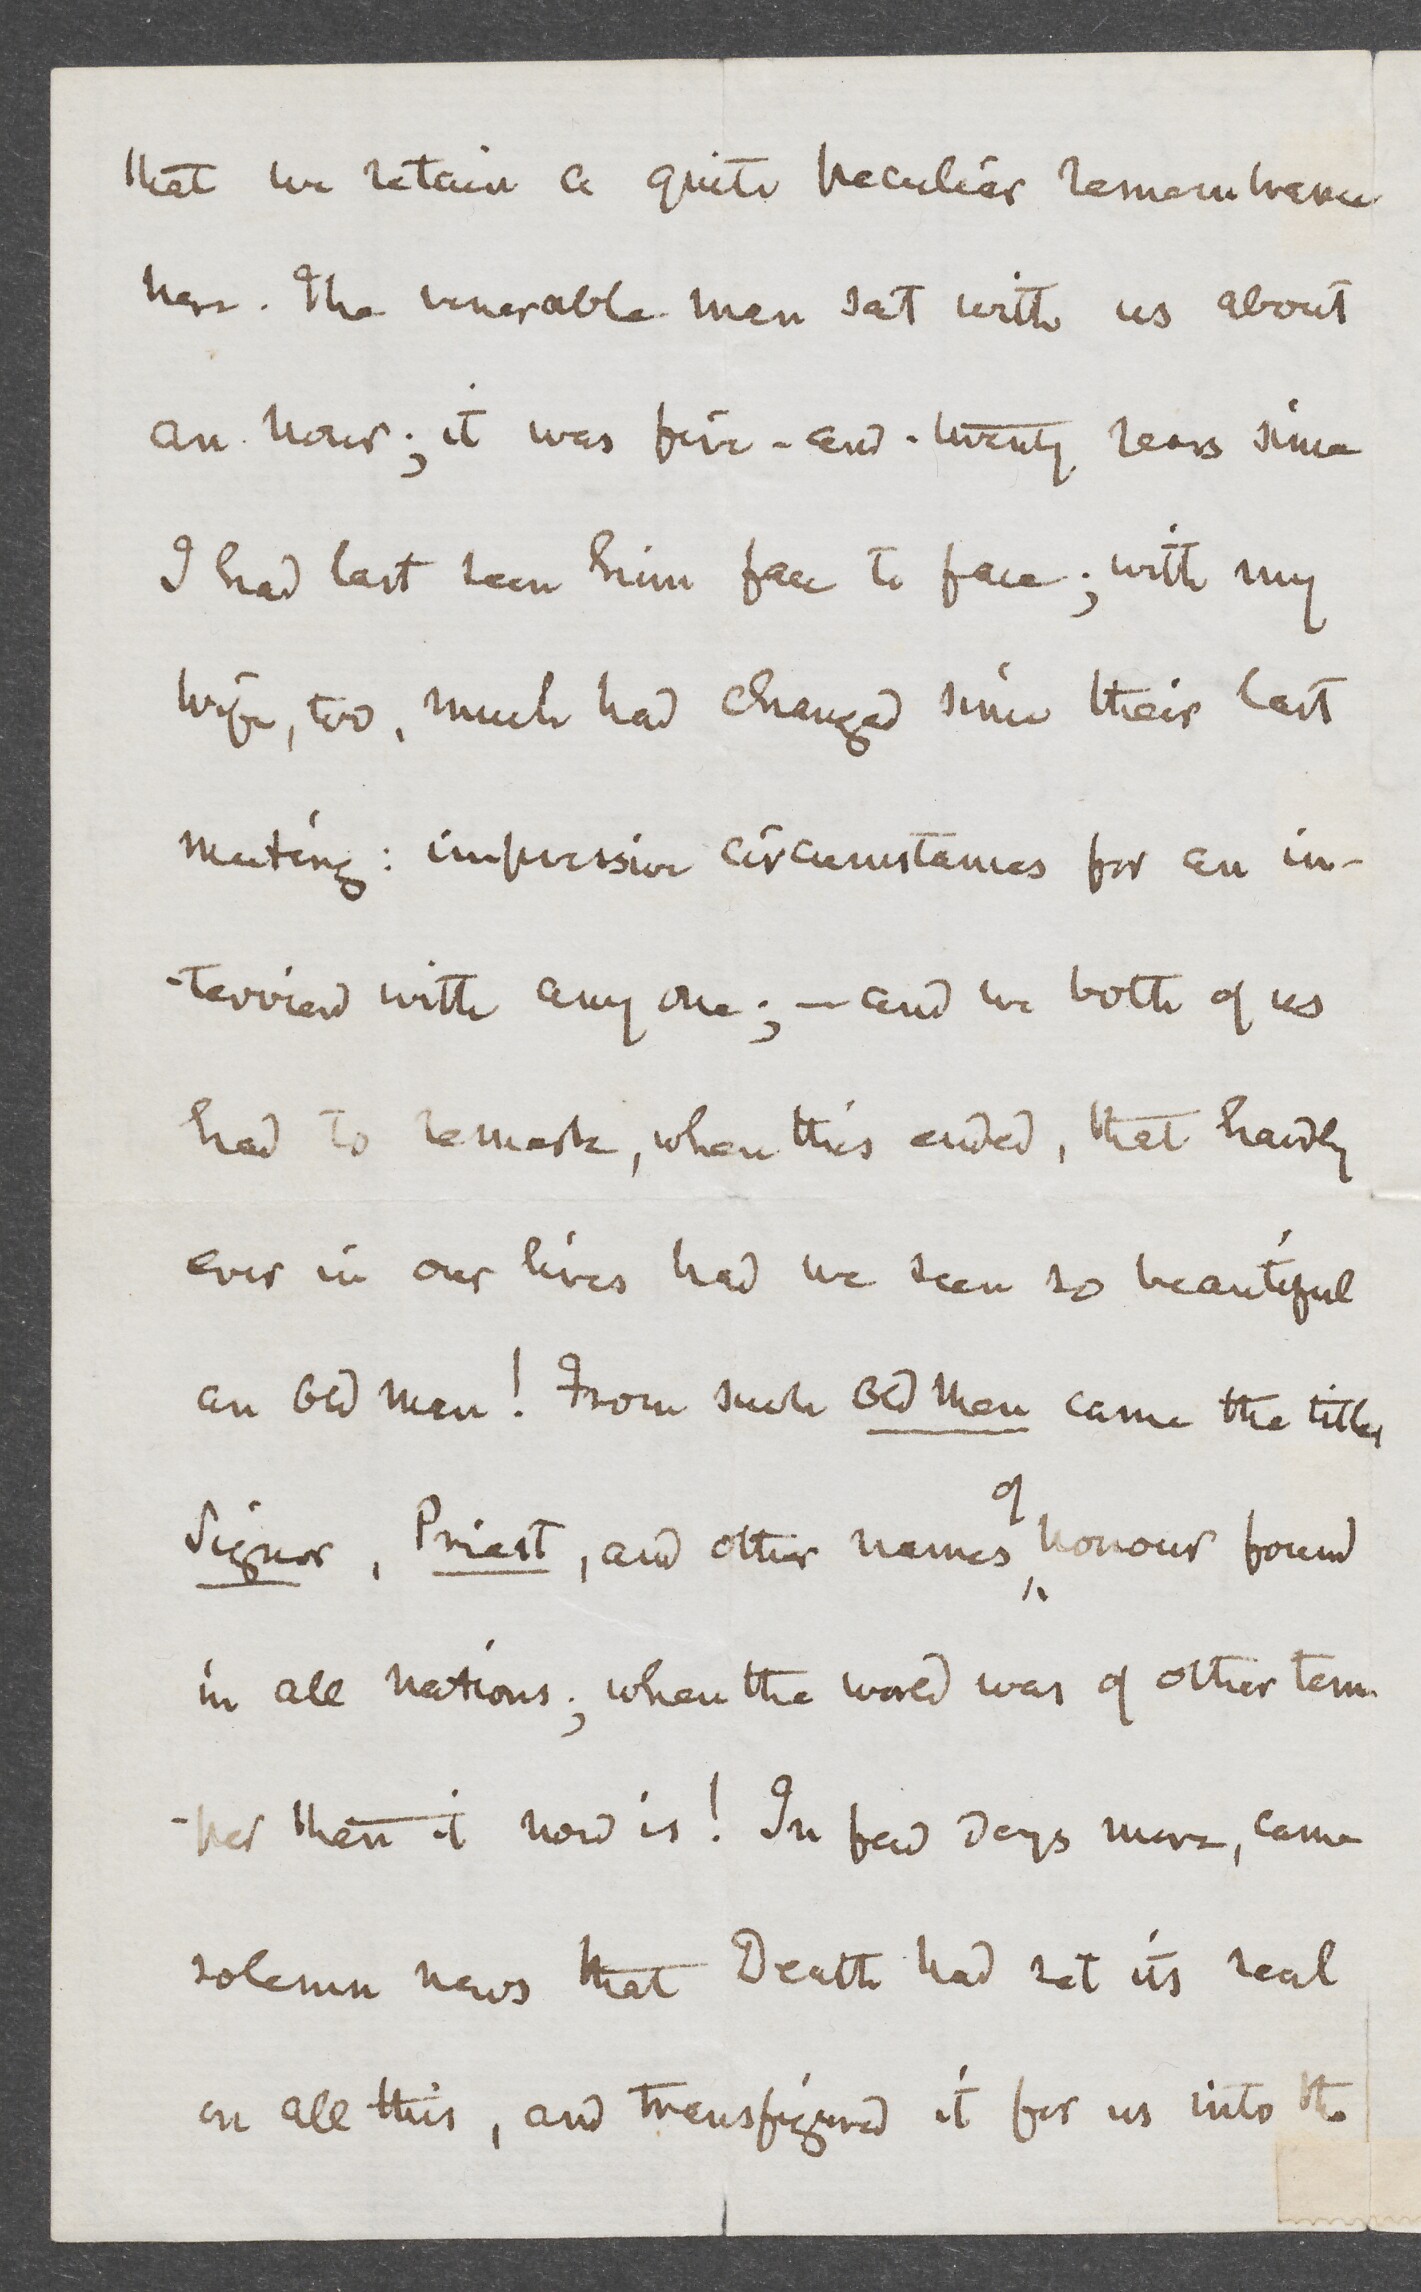 that we retain a quite peculiar remembrance
here. The venerable man sat with us about
an hour; it was five-and-twenty years since
I had last seen him face to face; with my
wife, too, much had changed since their last
meeting: impressive circumstances for an in-
-terview with any one; — and we both of us
had to remark, when this ended, that hardly
ever in our lives had we seen so beautiful
an old man! From such old men came the titles
Signor, Priest, and other names of honour found
in all nations; when the world was of other tem-
-per than it now is! In few days more, came
solemn news that Death had set its seal
on all this, and transfigured it for us into the